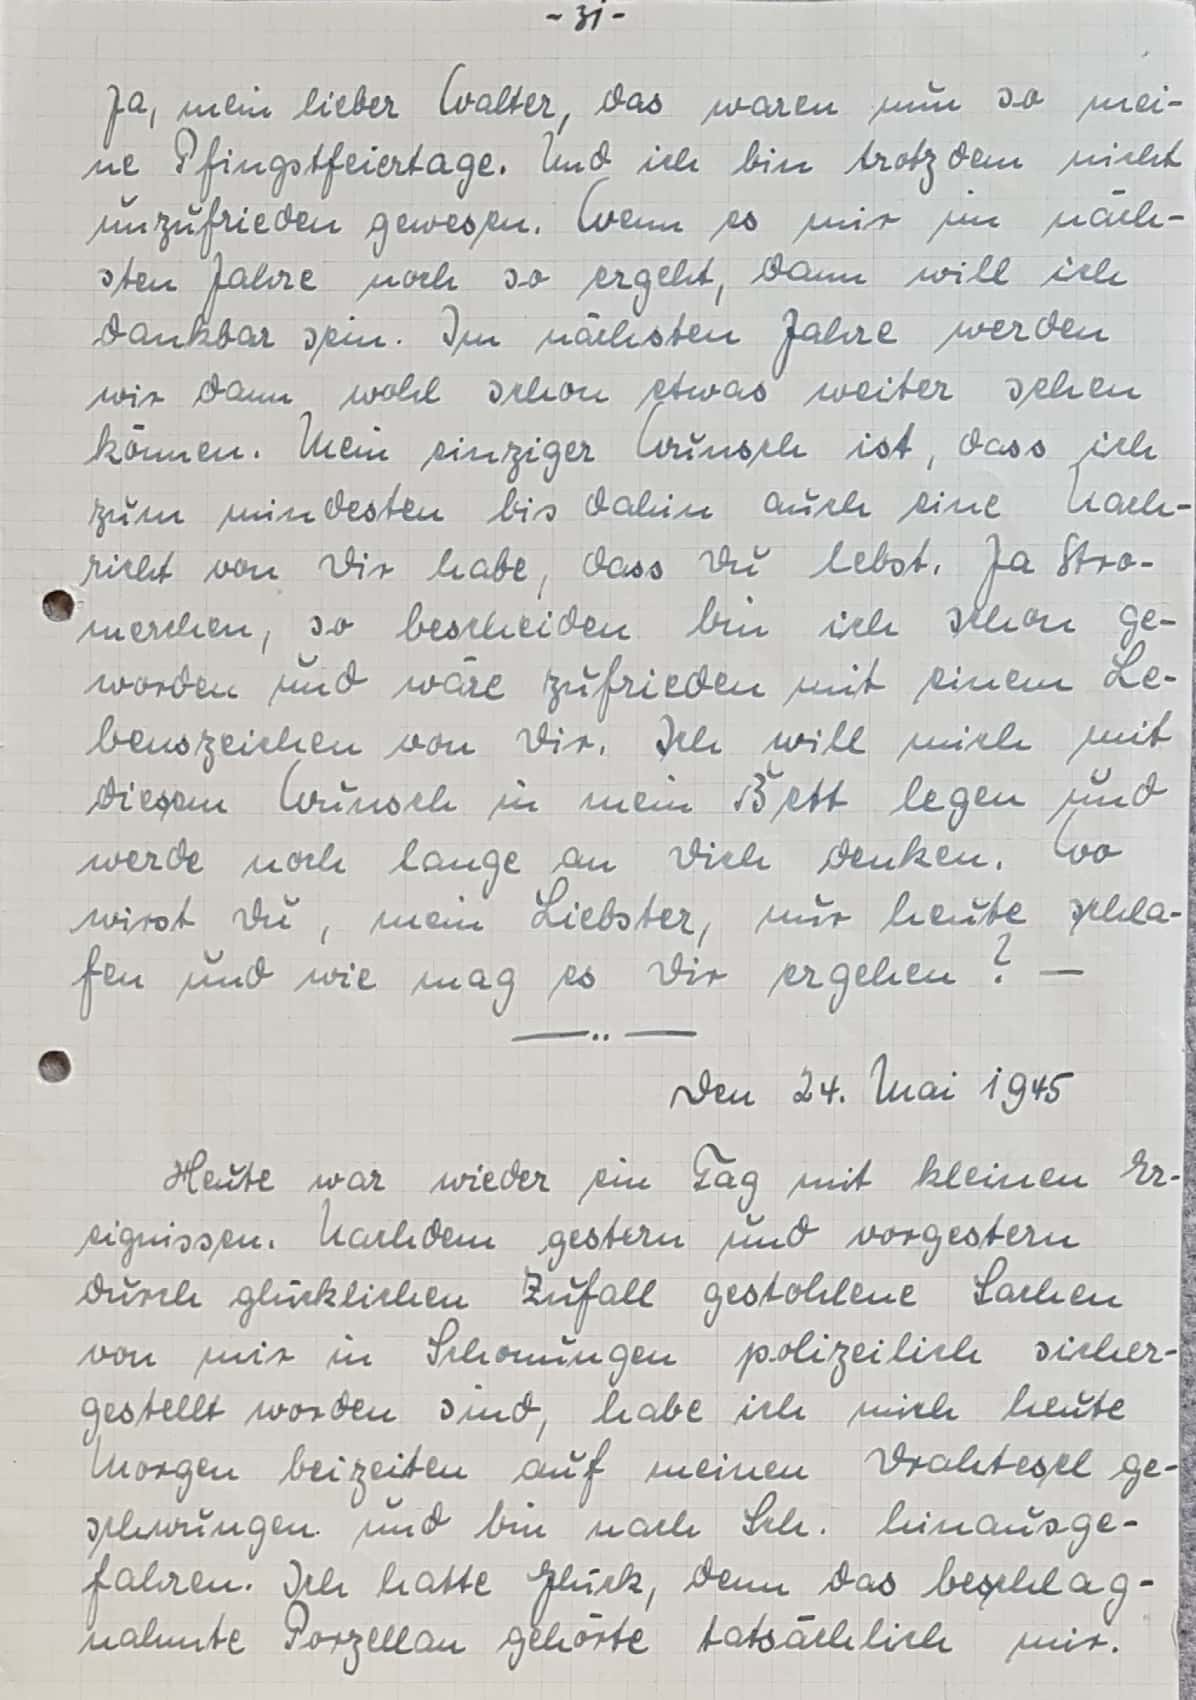 - 31 -
Ja, mein lieber Walter, das waren nun so mei-
ne Pfingstfeiertage. Und ich bin trotzdem nicht
unzufrieden gewesen. Wenn es mir im näch-
sten Jahre noch so ergeht, dann will ich
dankbar sein. Im nächsten Jahre werden
wir dann wohl schon etwas weiter sehen
können. Mein einziger Wunsch ist, dass ich
zum mindesten bis dahin auch eine Nach-
richt von Dir habe, dass Du lebst. Ja Stro-
merchen, so bescheiden bin ich schon ge-
worden und wäre zufrieden mit einem Le-
benszeichen von Dir. Ich will mich mit
diesem Wunsch in mein Bett legen und
werde noch lange an Dich denken. Wo
wirst Du, mein Liebster, nur heute schla-
fen und wie mag es Dir ergehen? —
Den 24. Mai 1945
Heute war wieder ein Tag mit kleinen Er-
eignissen. Nachdem gestern und vorgestern
durch glücklichen Zufall gestohlene Sachen
von mir in Schonungen polizeilich sicher-
gestellt worden sind, habe ich mich heute
Morgen beizeiten auf meinen Drahtesel ge-
schwungen und bin nach Sch. hinausge-
fahren. Ich hatte Glück, denn das beschlag-
nahmte Porzellan gehörte tatsächlich mir.